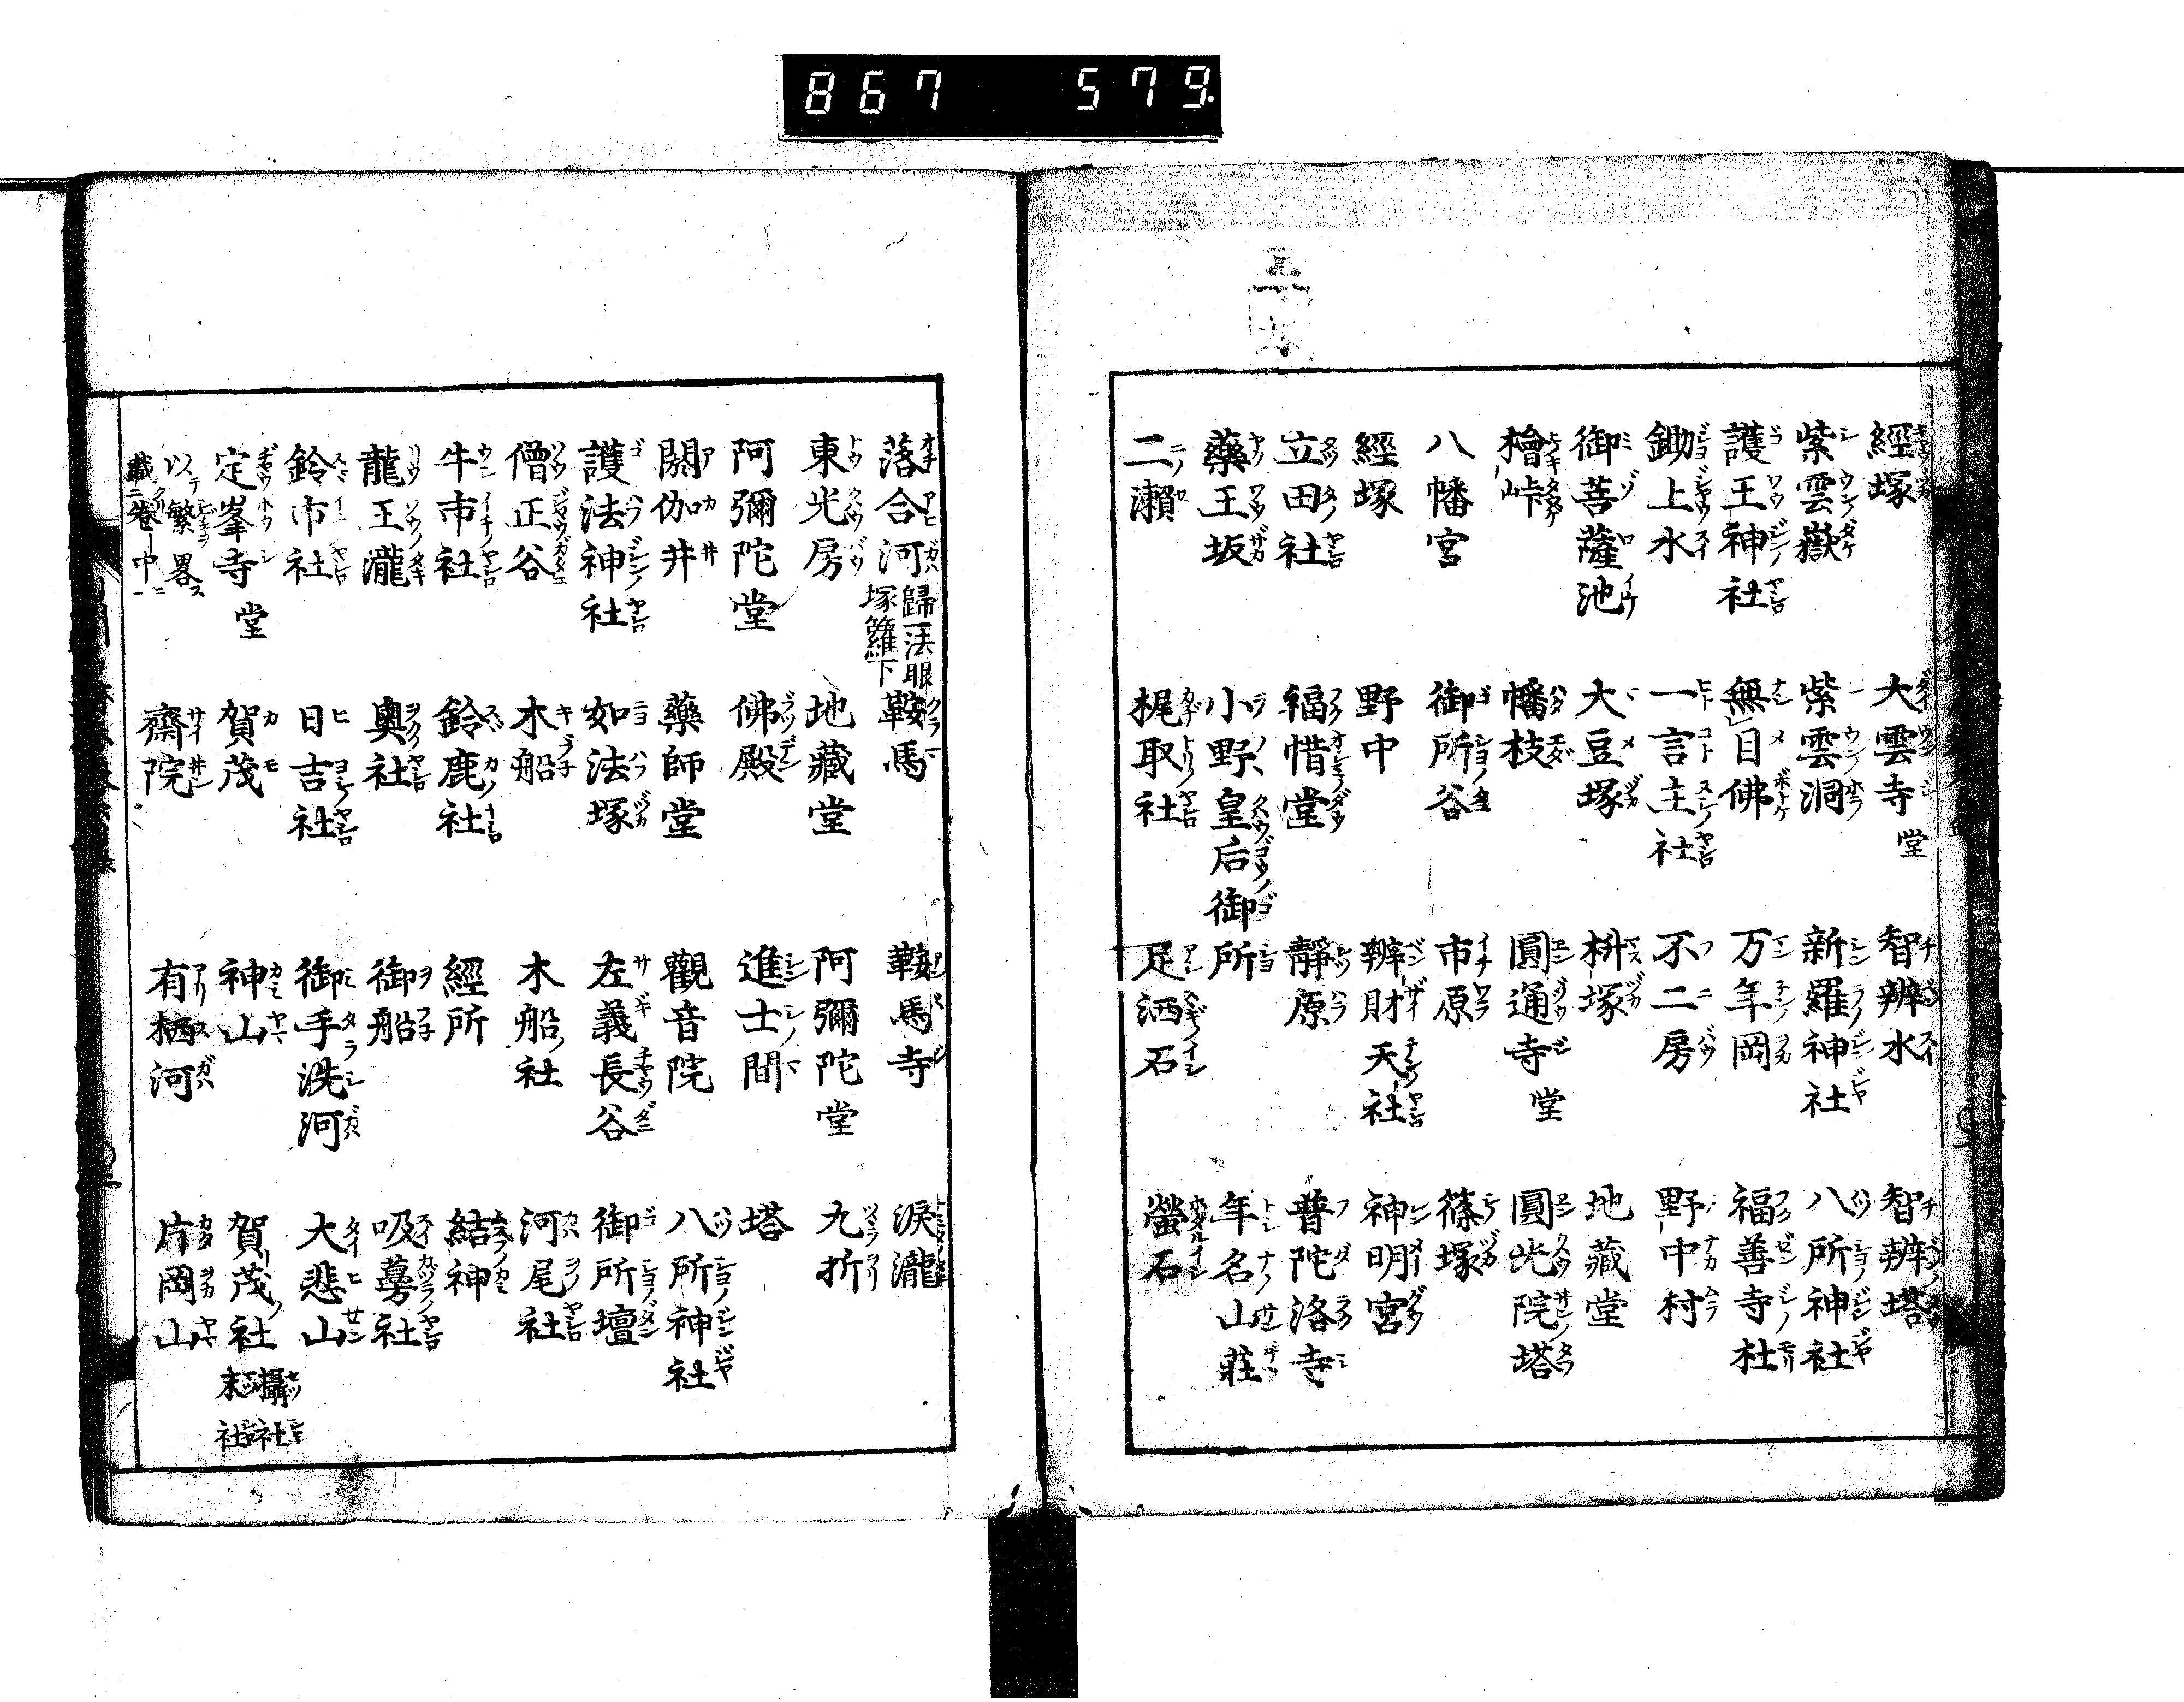 867 579
經塚 大雲寺堂 智辨水 智辨塔
紫雲嶽 紫雲洞 新羅神社 八所神社
護王神社 無目佛 万年岡 福善寺杜
鋤上水 一言主社 不二房 野中村
御菩薩池 大豆塚 枡塚 地藏堂
檜峠 幡枝 圓通寺堂 圓光院塔
八幡宮 御所谷 市原 篠塚
經塚 野中 辨財天社 神明宮
立田社 福惜堂 靜原 普陀洛寺
藥王坂 小野皇后御所 年名山莊
二瀬 梶取社 足洒石 螢石
落合河 歸一法眼塚籮下 鞍馬 鞍馬寺 涙瀧
東光房 地藏堂 阿彌陀堂 九折
阿彌陀堂 佛殿 進士間 塔
閼伽井 藥師堂 觀音院 八所神社
護法神社 如法塚 左義長谷 御所壇
僧正谷 木船 木船ノ社 河尾社
牛市社 鈴鹿社 經所 結神
龍王瀧 奧社 御船 吸葛社
鈴市社 日吉社 御手洗河 大悲山
定峯寺堂 賀茂 神山 賀茂ノ社 攝社末社
以テ繁畧ス載二卷中一 齋院 有栖河 片岡山